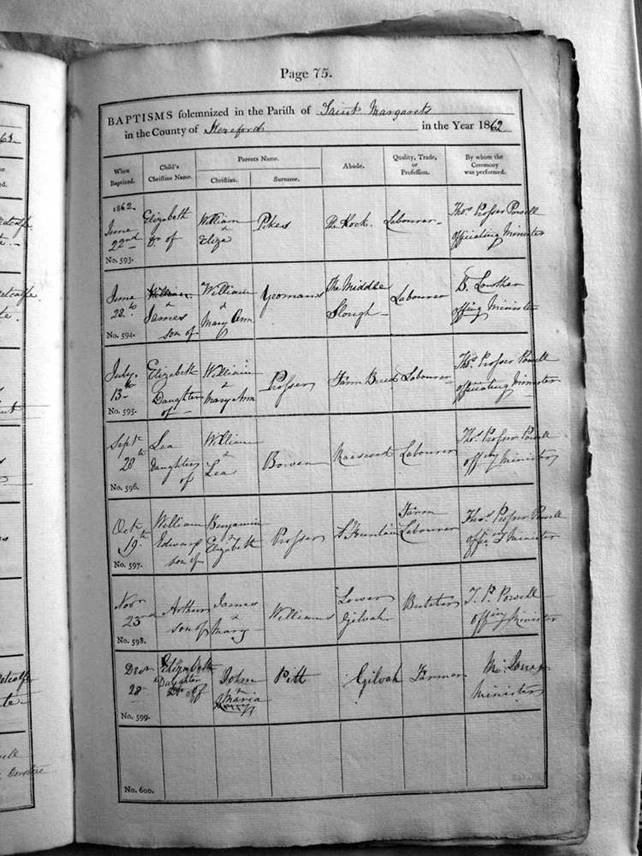 Page 75.
BAPTISMS solemnized in the Parish of Saint Margarets
in the County of Hereford in the Year 1862
When Baptized.
Child's Christian Name.
Parents Name.
Christian.
Surname.
Abode.
Quality, Trade, or Profession.
By whom the Ceremony was performed.
1862.
June 22nd
No. 593.
Elizabeth Dr of
William & Eliza
Pikes
The Hock.
Labourer
Thos. Prosser Powell
officiating Minister
June 28th
No. 594.
James
son of
William & Mary Ann
Yeomans
The Middle Slough
Labourer
Minister
July 13th
No. 595.
Elizabeth
Daughter of
William & Mary Ann
Prosser
Labourer
Thos. Prosser Powell
officiating Minister
Septr 28th
No. 596.
Lea
Daughter of
William & Lea
Bowen
Labourer
Thos. Prosser Powell
Minister
Oct. 19th
No. 597.
William Edward
son of
Benjamin & Elizabeth
Prosser
Farm Labourer
Thos. Prosser Powell
Minister
Novr 23rd
No. 598.
Arthur
son of
James & Mary
Williams
Lower Gilvah
Butcher
T. P. Powell
Minister
28
No. 599.
Elizabeth
Daughter of
John & Maria
Pitt
Gilvah
Farmer
Minister
No. 600.